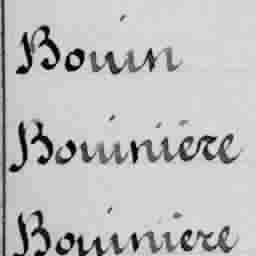 Bouin
Bouinière
Bouiniere